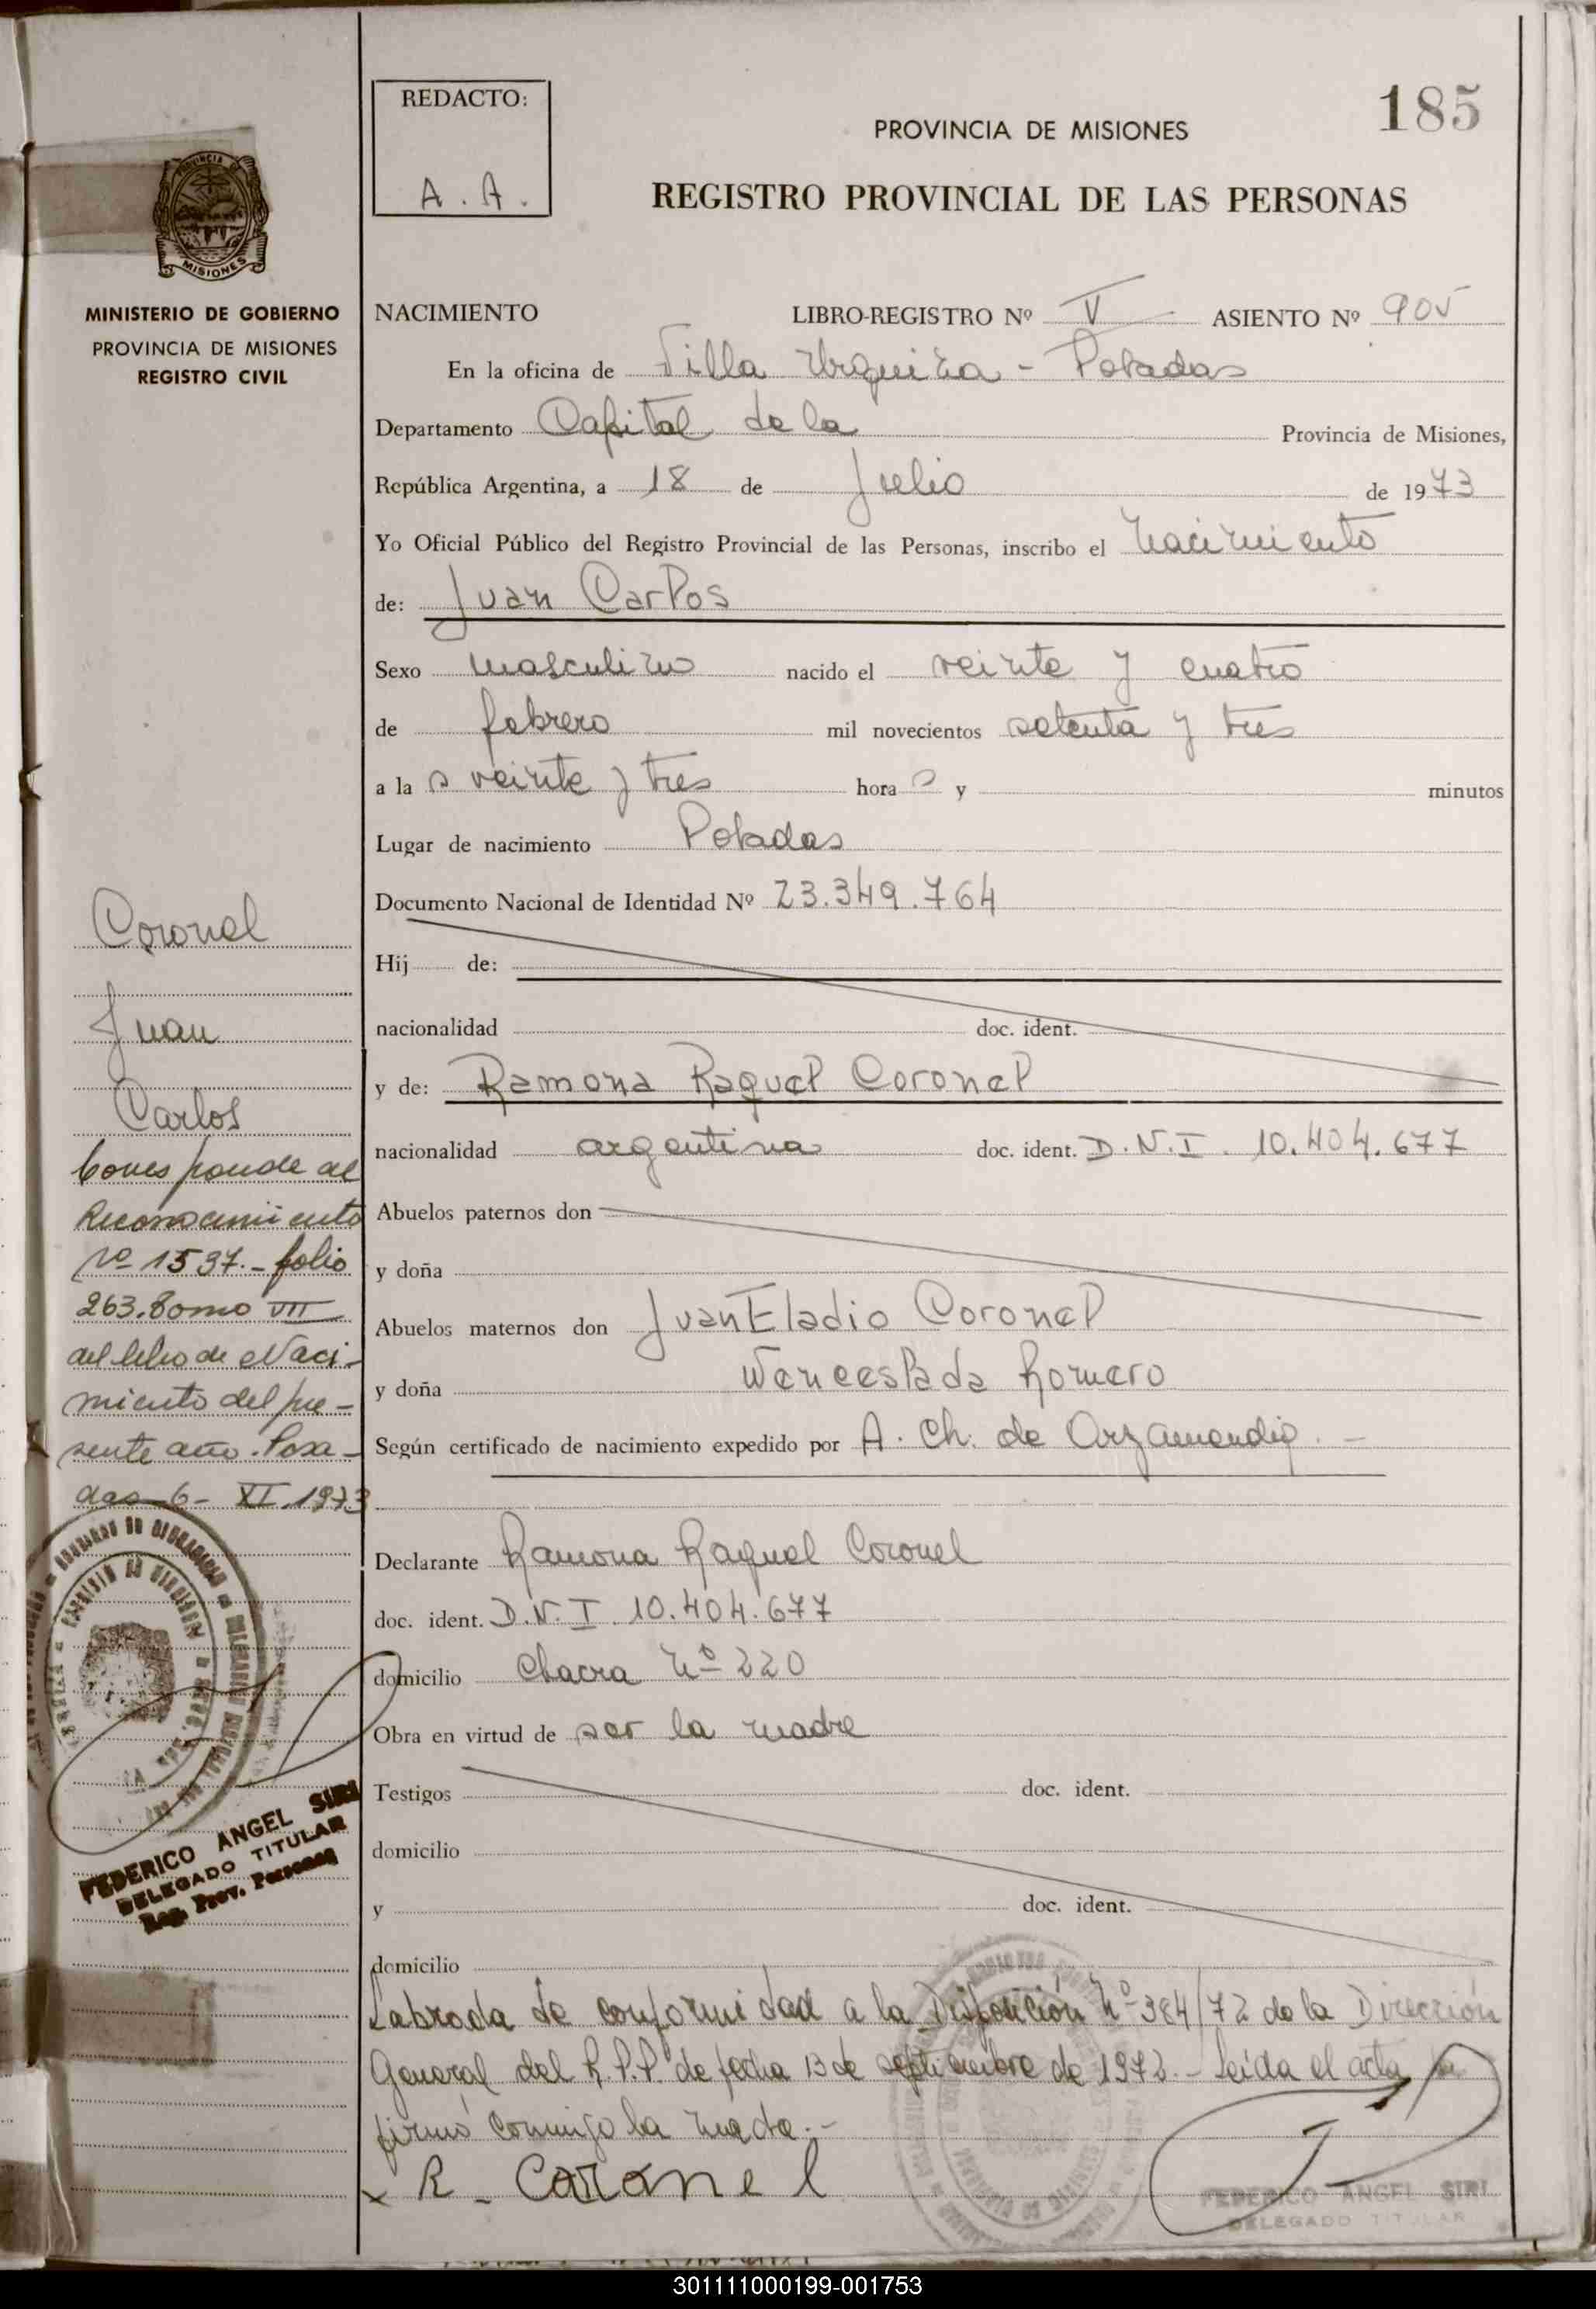 185
REDACTO:
A. A.
PROVINCIA DE MISIONES
REGISTRO PROVINCIAL DE LAS PERSONAS
PROVINCIA DE
MISIONES
MINISTERIO DE GOBIERNO
PROVINCIA DE MISIONES
REGISTRO CIVIL
NACIMIENTO LIBRO-REGISTRO Nº V ASIENTO Nº 905
En la oficina de Villa Urquiza - Posadas
Departamento Capital de la Provincia de Misiones,
República Argentina, a 18 de Julio de 1973
Yo Oficial Público del Registro Provincial de las Personas, inscribo el nacimiento
de: Juan Carlos
Sexo masculino nacido el veinte y cuatro
de febrero mil novecientos setenta y tres
a la s veinte y tres hora s y minutos
Lugar de nacimiento Posadas
Documento Nacional de Identidad Nº 23.349.764
Hij de:
nacionalidad doc. ident.
y de: Ramona Raquel Coronel
nacionalidad argentina doc. ident. D.N.I. 10.404.677
Abuelos paternos don
y doña
Abuelos maternos don Juan Eladio Coronel
y doña Wenceslada Romero
Según certificado de nacimiento expedido por A. Ch. de Arzamendia. -
Declarante Ramona Raquel Coronel
doc. ident. D.N.I. 10.404.677
domicilio Chacra Nº 220
Obra en virtud de ser la madre
Testigos doc. ident.
domicilio
y doc. ident.
domicilio
Labrada de conformidad a la Disposición Nº 384/72 de la Dirección
General del R.P.P. de fecha 13 de septiembre de 1972.- Leída el acta la
firmó conmigo la madre.-
x R - Coronel
FEDERICO ANGEL SIRI
DELEGADO TITULAR
Coronel
Juan
Carlos
Corresponde al
Reconocimiento
Nº 1537.- folio
263. Tomo VII
del libro de Naci-
miento del pre-
sente año. Posa-
das 6- XI. 1973
FEDERICO ANGEL SIRI
DELEGADO TITULAR
Reg. Prov. Personas
301111000199-001753